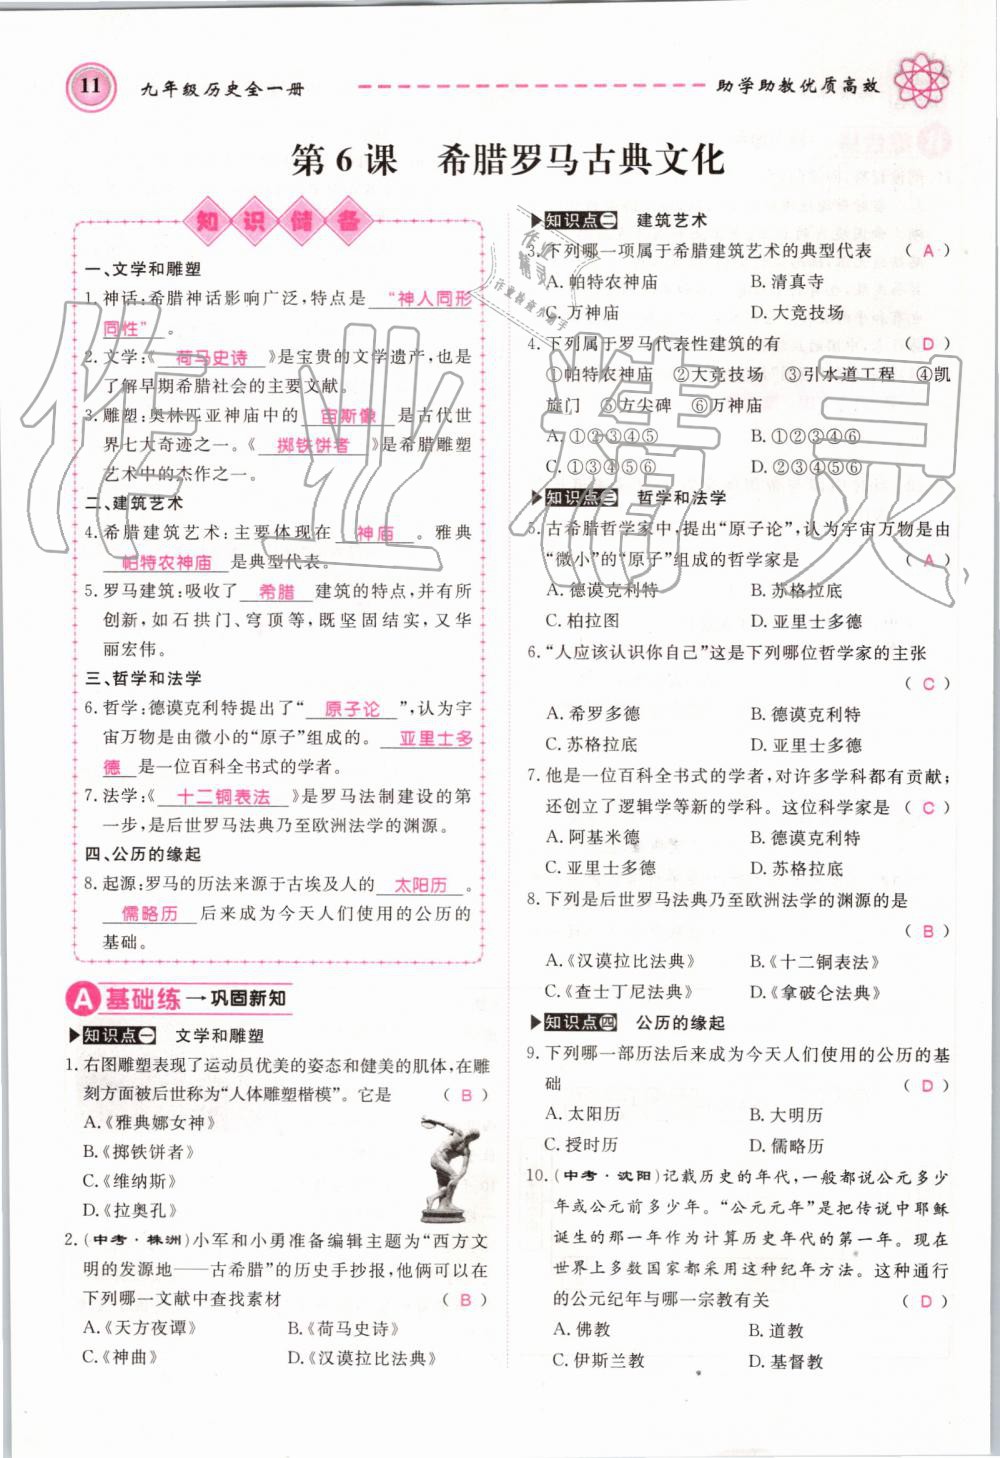 11 九年级历史全一册 助学助教优质高效
第6课 希腊罗马古典文化
知识储备
一、文学和雕塑
1. 神话:希腊神话影响广泛,特点是 “神人同形
同性” 。
2. 文学:《 荷马史诗 》是宝贵的文学遗产,也是
了解早期希腊社会的主要文献。
3. 雕塑:奥林匹亚神庙中的 宙斯像 是古代世
界七大奇迹之一。《 掷铁饼者 》是希腊雕塑
艺术中的杰作之一。
二、建筑艺术
4. 希腊建筑艺术:主要体现在 神庙 。雅典
帕特农神庙 是典型代表。
5. 罗马建筑:吸收了 希腊 建筑的特点,并有所
创新,如石拱门、穹顶等,既坚固结实,又华
丽宏伟。
三、哲学和法学
6. 哲学:德谟克利特提出了“ 原子论 ”,认为宇
宙万物是由微小的“原子”组成的。 亚里士多
德 是一位百科全书式的学者。
7. 法学:《 十二铜表法 》是罗马法制建设的第
一步,是后世罗马法典乃至欧洲法学的渊源。
四、公历的缘起
8. 起源:罗马的历法来源于古埃及人的 太阳历 。
儒略历 后来成为今天人们使用的公历的
基础。
A 基础练→巩固新知
知识点一 文学和雕塑
1. 右图雕塑表现了运动员优美的姿态和健美的肌体,在雕
刻方面被后世称为“人体雕塑楷模”。它是 ( B )
A.《雅典娜女神》
B.《掷铁饼者》
C.《维纳斯》
D.《拉奥孔》
2. (中考·株洲)小军和小勇准备编辑主题为“西方文
明的发源地——古希腊”的历史手抄报,他俩可以在
下列哪一文献中查找素材 ( B )
A.《天方夜谭》 B.《荷马史诗》
C.《神曲》 D.《汉谟拉比法典》
知识点二 建筑艺术
3. 下列哪一项属于希腊建筑艺术的典型代表 ( A )
A. 帕特农神庙 B. 清真寺
C. 万神庙 D. 大竞技场
4. 下列属于罗马代表性建筑的有 ( D )
①帕特农神庙 ②大竞技场 ③引水道工程 ④凯
旋门 ⑤方尖碑 ⑥万神庙
A. ①②③④⑤ B. ①②③④⑥
C. ①③④⑤⑥ D. ②③④⑥
知识点三 哲学和法学
5. 古希腊哲学家中,提出“原子论”,认为宇宙万物是由
“微小”的“原子”组成的哲学家是 ( A )
A. 德谟克利特 B. 苏格拉底
C. 柏拉图 D. 亚里士多德
6. “人应该认识你自己”这是下列哪位哲学家的主张
( C )
A. 希罗多德 B. 德谟克利特
C. 苏格拉底 D. 亚里士多德
7. 他是一位百科全书式的学者,对许多学科都有贡献;
还创立了逻辑学等新的学科。这位科学家是 ( C )
A. 阿基米德 B. 德谟克利特
C. 亚里士多德 D. 苏格拉底
8. 下列是后世罗马法典乃至欧洲法学的渊源的是
( B )
A.《汉谟拉比法典》 B.《十二铜表法》
C.《查士丁尼法典》 D.《拿破仑法典》
知识点四 公历的缘起
9. 下列哪一部历法后来成为今天人们使用的公历的基
础 ( D )
A. 太阳历 B. 大明历
C. 授时历 D. 儒略历
10. (中考·沈阳)记载历史的年代,一般都说公元多少
年或公元前多少年。“公元元年”是把传说中耶稣
诞生的那一年作为计算历史年代的第一年。现在
世界上多数国家都采用这种纪年方法。这种通行
的公元纪年与哪一宗教有关 ( D )
A. 佛教 B. 道教
C. 伊斯兰教 D. 基督教
作业精灵